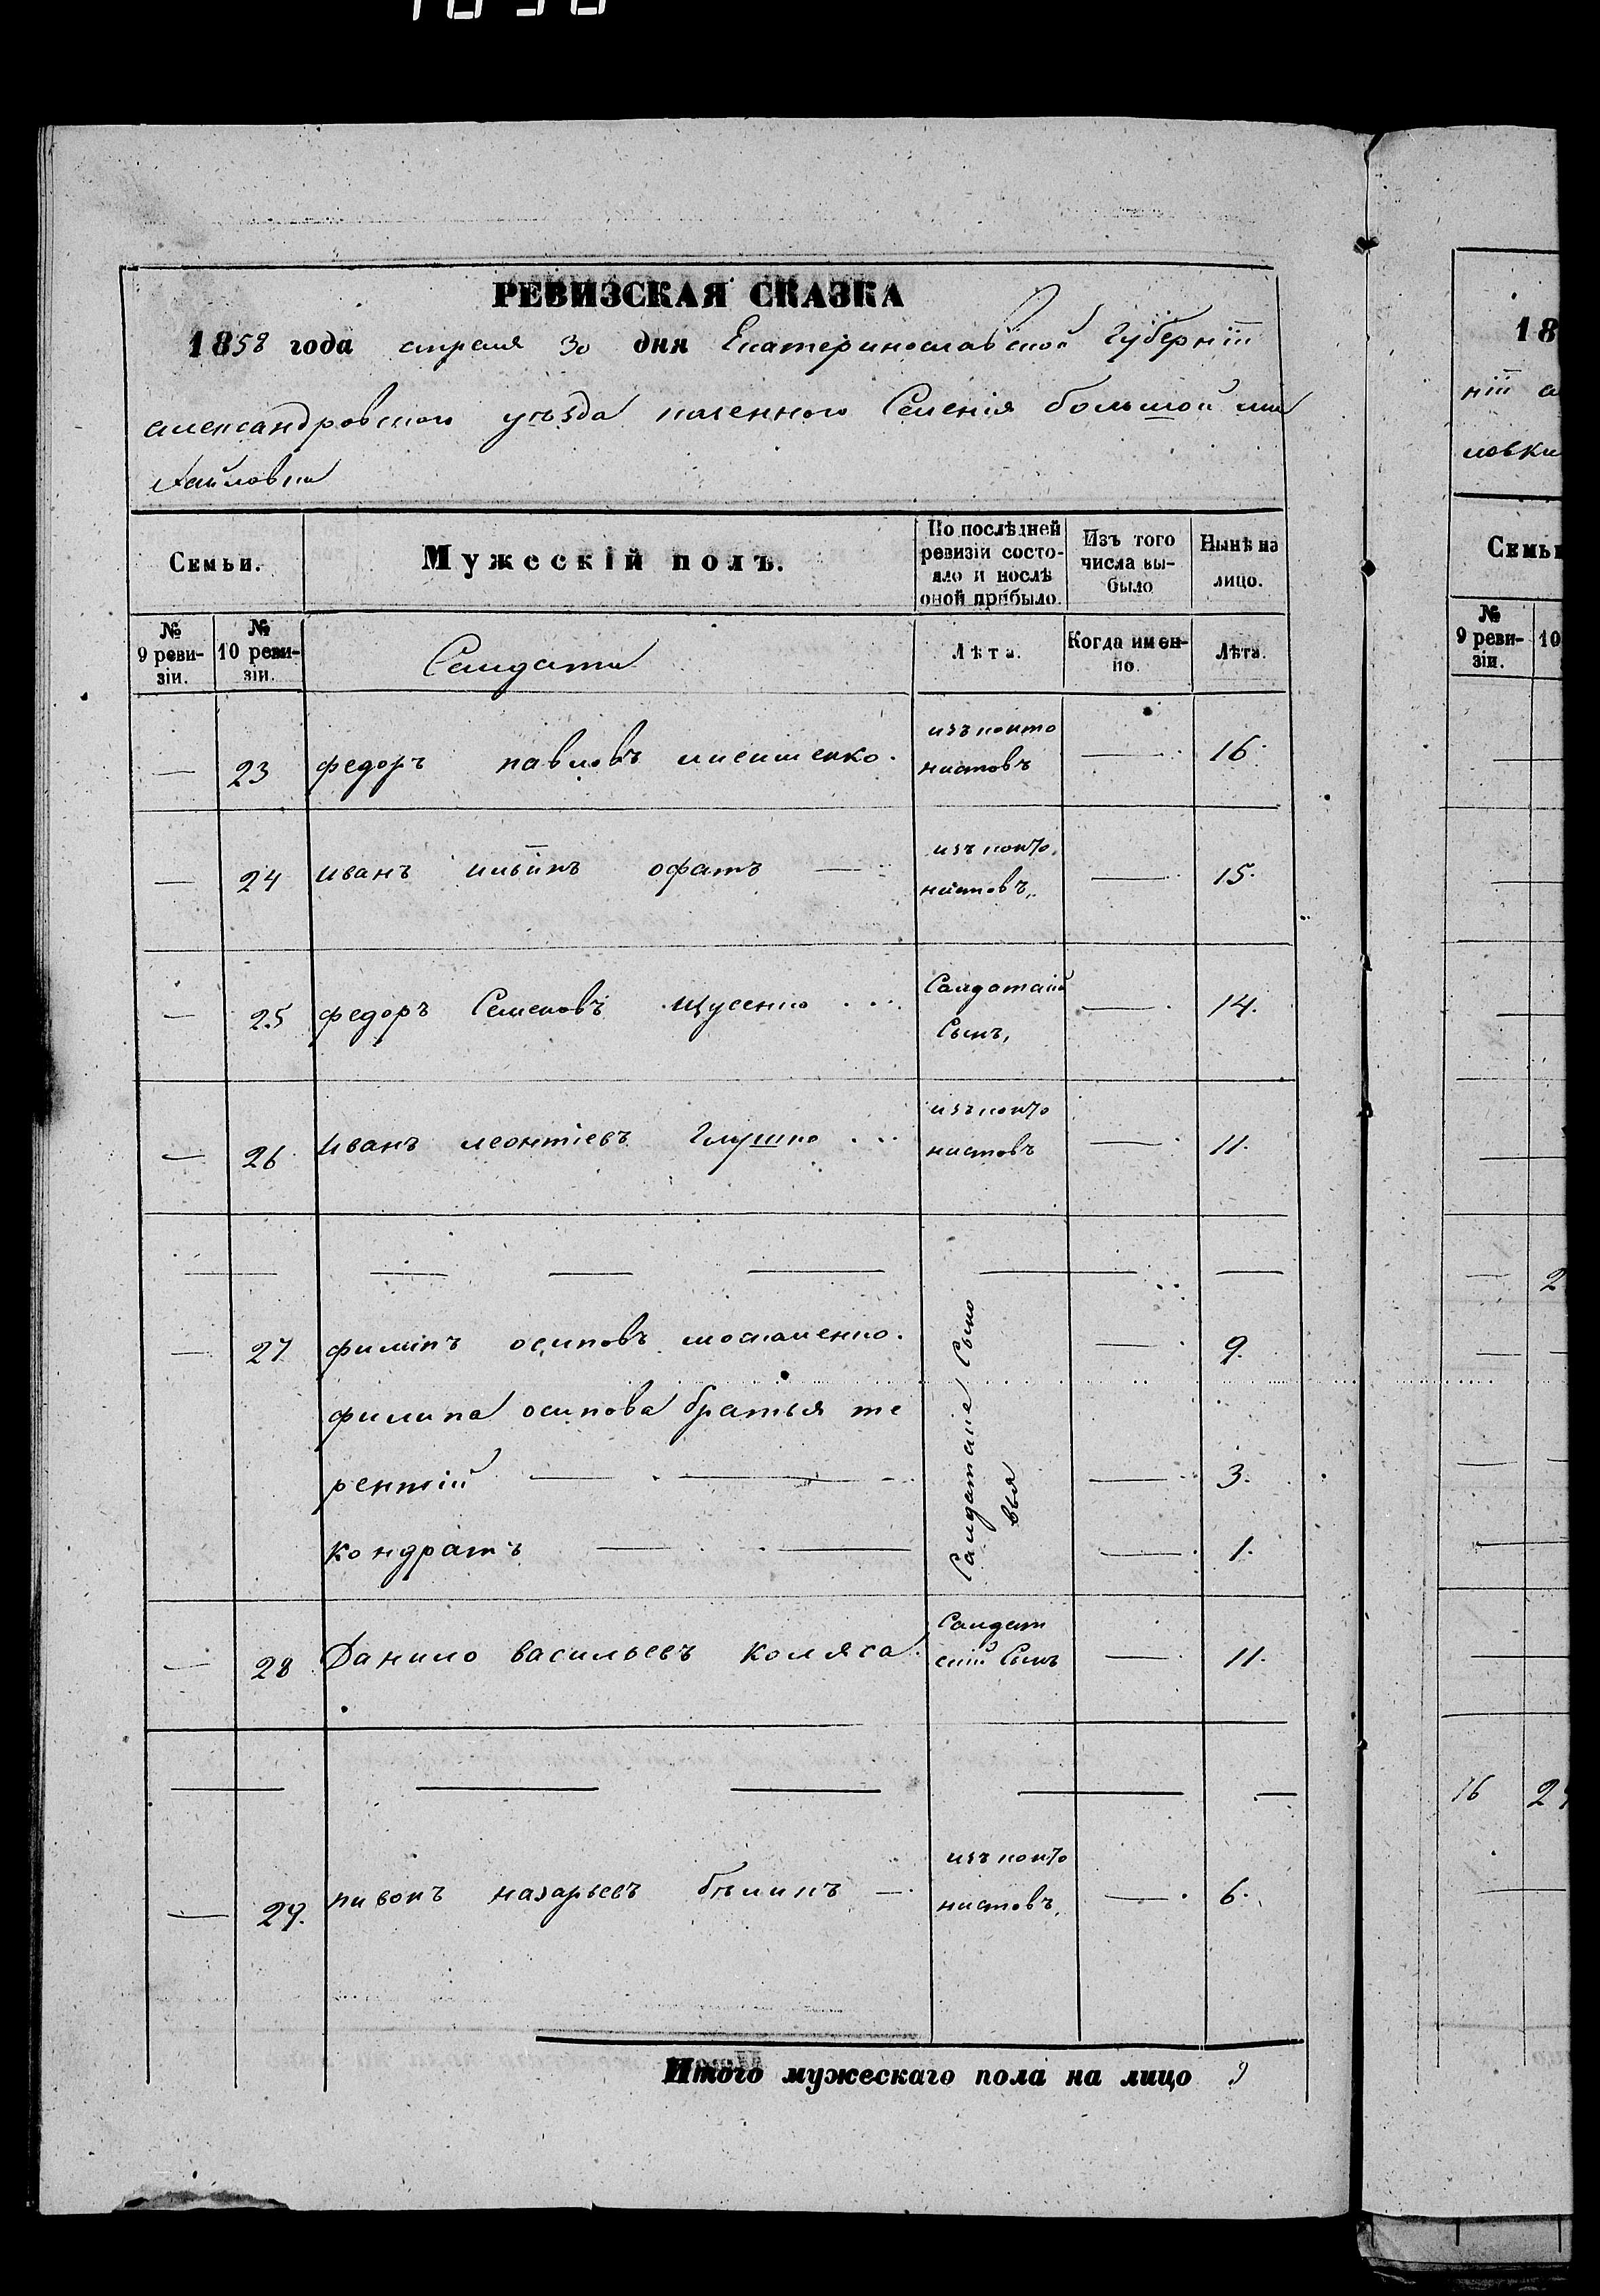 РЕВИЗСКАЯ СКАЗКА
1858 года апреля 30 дня Екатеринославской Губерніи
александровского уѣзда казенного Селенія большой ми
хайловки
Семьи.
Мужескій полъ.
По послѣдней ревизіи состояло и послѣ оной прибыло.
Изъ того числа выбыло
Ныне на лицо.
№ 9 ревизіи.
№ 10 ревизіи.
Солдати
Лѣта.
Когда именно.
Лѣта.
— 23 федоръ павловъ изъ канто нистовъ — 16.
— 24 иванъ ильинъ офатъ — изъ канто нистовъ — 15.
— 25 федоръ Семеновъ Щусенко Салдатский Сынъ, — 14.
— 26 иванъ леонтіевъ Глушко изъ канто нистовъ — 11.
— 27 филипъ осиповъ — 9.
Салдатскіе Сыно вья
филипа осипова братья те
рентій — 3.
кондратъ — 1.
— 28 Данило васильевъ коляса Салдат скій Сынъ — 11.
— 29. пивонъ назарьевъ бѣликъ — изъ канто нистовъ. — 6.
Итого мужескаго пола на лицо 9
18
ніи а
ловки
Семьи
№ 9 реви- зіи.
10
2
16 29